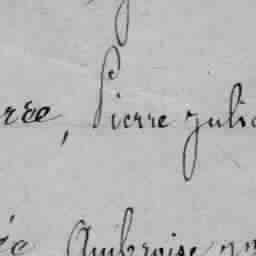 rre, Pierre Julie
ée Ambroise